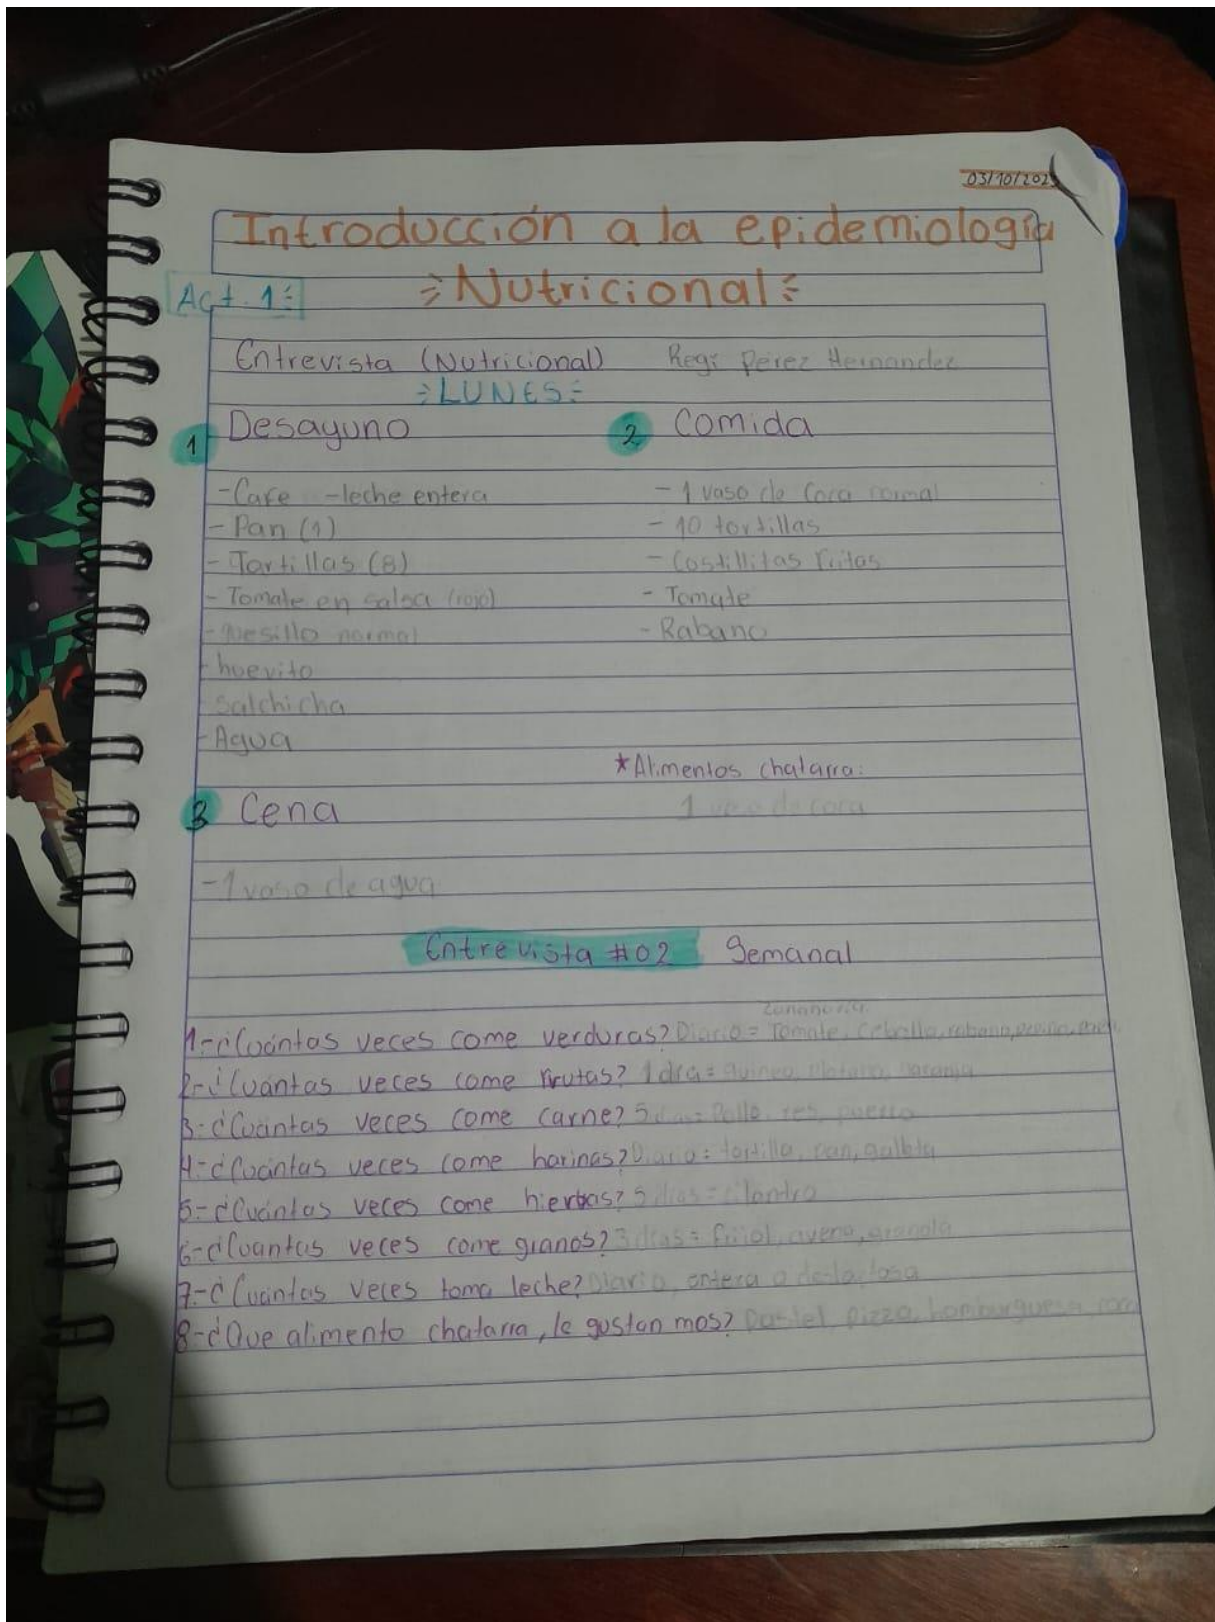 03/10/202
Introducción a la epidemiología
Nutricional
Act. 1:
Entrevista (Nutricional) Regi Perez Hernandez
LUNES
1 Desayuno
-Cafe -leche entera
-Pan (1)
-Tortillas (8)
-Tomate en salsa (rojo)
-quesillo normal
-huevito
-Salchicha
-Agua
2 Comida
-1 vaso de Coca normal
-10 tortillas
-Costillitas fritas
-Tomate
-Rabano
*Alimentos chatarra:
1 vaso de coca
3 Cena
-1 vaso de agua
Entrevista #02 Semanal
zanahoria
1-¿Cuántas veces come verduras? Diario = Tomate, cebolla, rabano,
2-¿Cuántas veces come frutas? 1 dia = guineo, platano, naranja
3-¿Cuántas veces come carne? 5 dias = Pollo, res, puerco
4-¿Cuántas veces come harinas? Diario = tortilla, pan, galleta
5-¿Cuántas veces come hierbas? 5 dias = cilantro
6-¿Cuantas veces come granos? 3 dias = frijol, avena, granola
7-¿Cuántas veces toma leche? Diario, entera o deslactosa
8-¿Que alimento chatarra, le gustan mas? Pastel, pizza, hamburguesa, coca